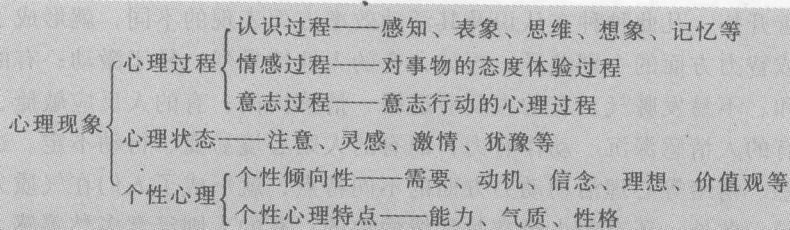 认识过程——感知、表象、思维、想象、记忆等
心理过程
情感过程——对事物的态度体验过程
意志过程——意志行动的心理过程
心理现象
心理状态——注意、灵感、激情、犹豫等
个性心理
个性倾向性——需要、动机、信念、理想、价值观等
个性心理特点——能力、气质、性格